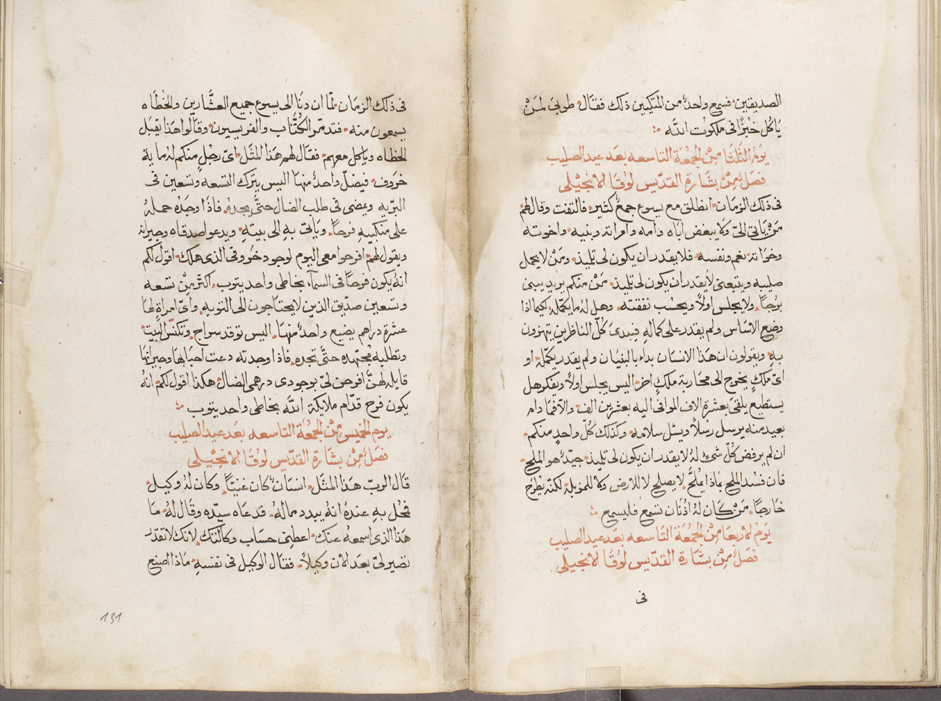 الصديقين فسمع واحدٌ من المتكيين ذلك فقال طوبى لمن
ياكل خبزًا فى ملكوت الله
يوم الثلثا من الجمعة التاسعه بعد عيد الصليب
فصلٌ من بشارة القديس لوقا الانجيلى
فى ذلك الزمان انطلق مع يسوع جمع كثير فالتفت وقال لهم
من ياتى الىّ ولا يبغض اباه وامه وامراته وبنيه واخوته
وخواته نعم ونفسه فلا يقدر ان يكون لى تلميذ ومن لا يحمل
صليبه ويتبعنى لا يقدر ان يكون لى تلميذ من منكم يريد يبنى
برجًا ولا يجلس اولاً ويحسب نفقته وهل له ما يكمله كيما اذا
وضع الاساس ولم يقدر على كماله فيبدى كل الناظرين يتهزون
به ويقولون ان هذا الانسان بداء بالبنيان ولم يقدر يكمله او
اى ملكٍ يخرج الى محاربة ملك اخر اليس يجلس اولاً ويفكر هل
يستطيع يلقى بعشرة الاف الموافى اليه بعشرين الف والا فما دام
بعيد منه يرسل رسلاً ويسل سلامه وكذلك كل واحدٍ منكم
ان لم يرفض كل شى له لا يقدر ان يكون لى تلميذ جيّد هو الملح
فان فسد الملح بماذا يملّح لا يصلح لا للارض ولا للمزبله لكنه يطرح
خارجًا من كان له اذنان تسمع فليسمع
يوم لاربعا من الجمعة التاسعه بعد عيد الصليب
فصلٌ من بشارة القديس لوقا الانجيلى
فى
فى ذلك الزمان لما ان دنا الى يسوع جميع العشارين والخطاه
يسمعون منه فتذمّر الكتّاب والفريسيون وقالوا هذا يقبل
الخطاه وياكل معهم فقال لهم هذا المثل اى رجلٍ منكم له ماية
خروف فيضلّ واحدٌ منها اليس يترك التسعه وتسعين فى
البريه ويمضى فى طلب الضال حتى يجده فاذا وجده حمله
على منكبيه فرحًا وياتى به الى بيته ويدعو اصدقاه وجيرانه
ويقول لهم افرحوا معى اليوم لوجود خروفى الذى هلك اقول لكم
انه يكون فرحًا فى السما بخاطى واحد يتوب اكثر من تسعه
وتسعين صديق الذين لا يحتاجون الى التوبه واى امراةٍ لها
عشرة دراهم يضيع واحدٌ منها اليس توقد سراج وتكنس البيت
وتطلبه مجتهده حتى تجده فاذا وجدته دعت احبابها وجيرانها
قايله لهن افرحن لى بوجودى درهمى الضال هكذا اقول لكم انه
يكون فرح قدّام ملايكة الله بخاطى واحد يتوب
يوم الخميس من الجمعة التاسعه بعد عيد الصليب
فصلٌ من بشارة القديس لوقا الانجيلى
قال الربّ هذا المثل انسان كان غنيّا وكان له وكيل
فمُحل به عنده انه يبدد ماله فدعاه سيّده وقال له ما
هذا الذى اسمعه عنك اعطنى حساب وكالتك لانك لا تقدر
تصير لى بعد الان وكيلاً فقال الوكيل فى نفسه ماذا اصنع
131